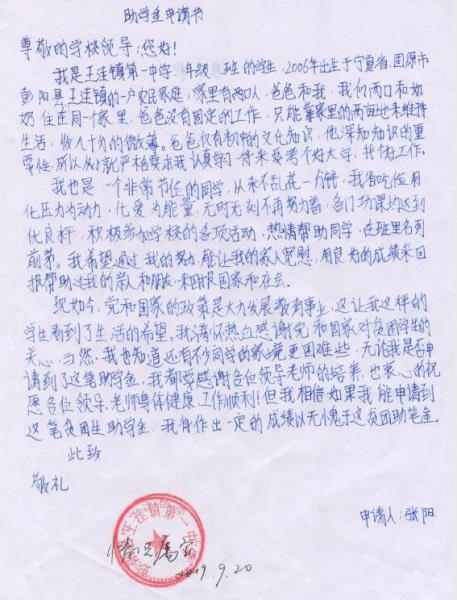 助学金申请书
尊敬的学校领导：您好！
我是王洼镇第一中学 年级 班的学生，2006年出生于宁夏省，固原市
彭阳县王洼镇的一户农民家庭，家里有两口人，爸爸和我，我们两口和奶
奶住在同一个家里，爸爸没有固定的工作，只能靠家里的两亩地来维持
生活，收入十分的微薄。爸爸仅有初中的文化知识，他深知知识的重
要性，所以从小就严格要求我认真学习，将来要考个好大学，找个好工作。
我也是一个非常节俭的同学，从来不乱花一分钱，我省吃俭用
化压力为动力，化爱为能量，无时无刻不再努力着，各门功课均达到
优良杆，积极参加学校的各项活动，热情帮助同学，在班里名列
前茅。我希望通过我的努力，能让我的家人宽慰，用良为的成绩来回
报帮助过我的亲人和朋友，来回报国家和社会。
现如今，党和国家的政策是大力发展教育事业，这让我这样的
学生看到了生活的希望。我满怀热血感谢党和国家对贫困学生的
关心，当然，我也知道还有不少同学的家境更困难些，无论我是否申
请到了这笔助学金，我都要感谢各位领导老师的培养，也衷心的祝
愿各位领导、老师身体健康，工作顺利！但我相信如果我能申请到
这笔贫困生助学金，我会作出一定的成绩以无愧于这贫困助笔金。
此致
敬礼
申请人：张阳
王洼镇第一中
情况属实
2019.9.20